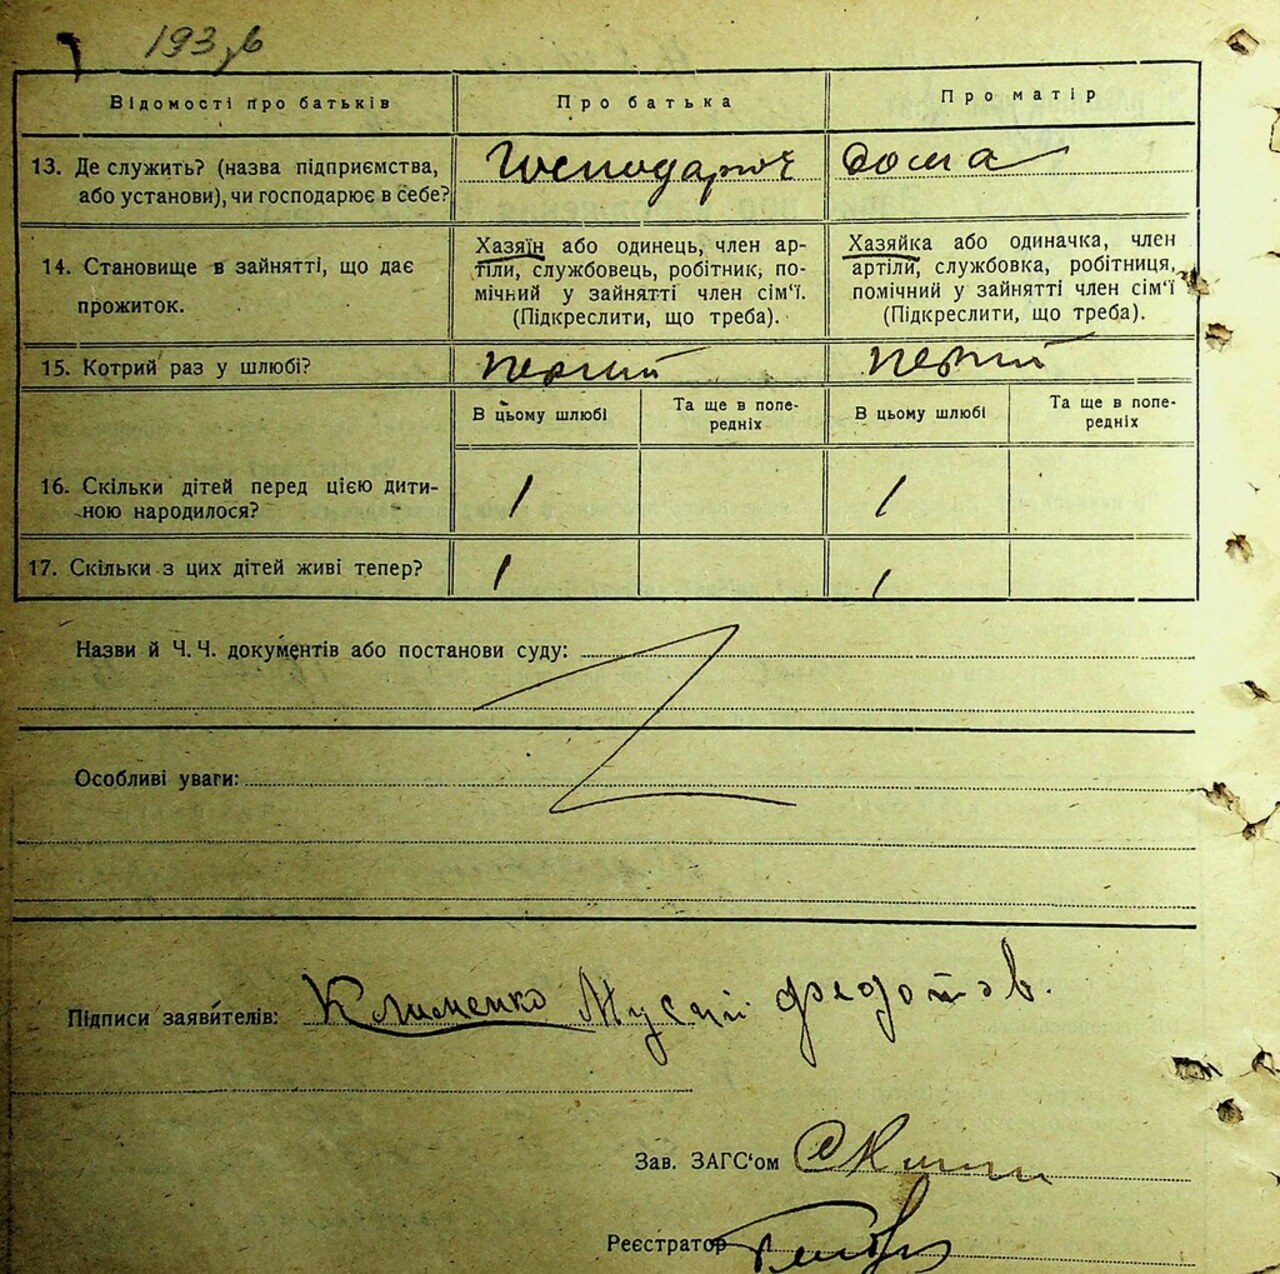 193
Відомості про батьків
Про батька
Про матір
13. Де служить? (назва підприємства,
або установи), чи господарює в себе?
Господарює
дома
14. Становище в зайнятті, що дає
прожиток.
Хазяїн або одинець, член ар-
тіли, службовець, робітник, по-
мічний у зайнятті член сім‘ї.
(Підкреслити, що треба).
Хазяйка або одиначка, член
артіли, службовка, робітниця,
помічний у зайнятті член сім‘ї
(Підкреслити, що треба).
15. Котрий раз у шлюбі?
перший
перший
В цьому шлюбі
Та ще в попе-
редніх
В цьому шлюбі
Та ще в попе-
редніх
16. Скільки дітей перед цією дити-
ною народилося?
1
1
17. Скільки з цих дітей живі тепер?
1
1
Назви й Ч. Ч. документів або постанови суду:
Особливі уваги:
Підписи заявителів: Клименко Мусій Федотов.
Зав. ЗАГС‘ом
Реєстратор